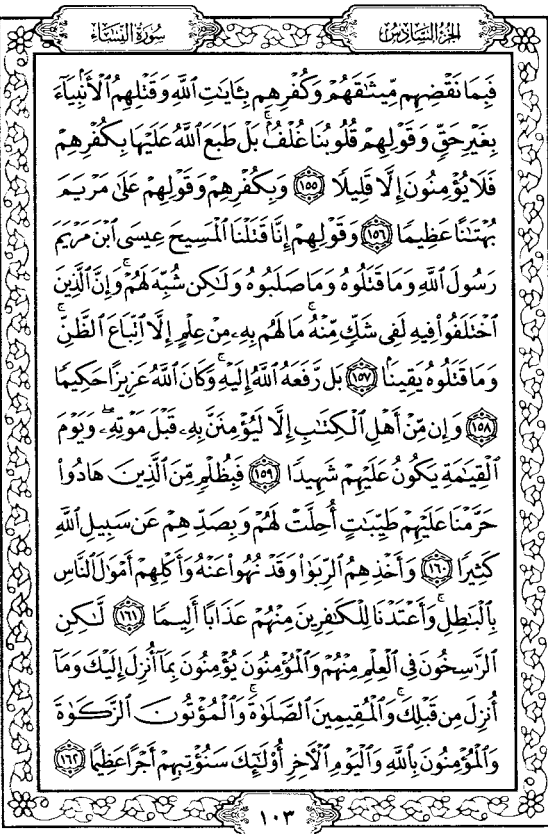 سُورَةُ النِّسَاء الجُزْءُ السَّادِسُ
فَبِمَا نَقْضِهِم مِّيثَٰقَهُمْ وَكُفْرِهِم بِـَٔايَٰتِ ٱللَّهِ وَقَتْلِهِمُ ٱلْأَنۢبِيَآءَ
بِغَيْرِ حَقٍّ وَقَوْلِهِمْ قُلُوبُنَا غُلْفٌۢ ۚ بَلْ طَبَعَ ٱللَّهُ عَلَيْهَا بِكُفْرِهِمْ
فَلَا يُؤْمِنُونَ إِلَّا قَلِيلًا ١٥٥ وَبِكُفْرِهِمْ وَقَوْلِهِمْ عَلَىٰ مَرْيَمَ
بُهْتَٰنًا عَظِيمًا ١٥٦ وَقَوْلِهِمْ إِنَّا قَتَلْنَا ٱلْمَسِيحَ عِيسَى ٱبْنَ مَرْيَمَ
رَسُولَ ٱللَّهِ وَمَا قَتَلُوهُ وَمَا صَلَبُوهُ وَلَٰكِن شُبِّهَ لَهُمْ ۚ وَإِنَّ ٱلَّذِينَ
ٱخْتَلَفُوا۟ فِيهِ لَفِى شَكٍّ مِّنْهُ ۚ مَا لَهُم بِهِۦ مِنْ عِلْمٍ إِلَّا ٱتِّبَاعَ ٱلظَّنِّ ۚ
وَمَا قَتَلُوهُ يَقِينًۢا ١٥٧ بَل رَّفَعَهُ ٱللَّهُ إِلَيْهِ ۚ وَكَانَ ٱللَّهُ عَزِيزًا حَكِيمًا
١٥٨ وَإِن مِّنْ أَهْلِ ٱلْكِتَٰبِ إِلَّا لَيُؤْمِنَنَّ بِهِۦ قَبْلَ مَوْتِهِۦ ۖ وَيَوْمَ
ٱلْقِيَٰمَةِ يَكُونُ عَلَيْهِمْ شَهِيدًا ١٥٩ فَبِظُلْمٍ مِّنَ ٱلَّذِينَ هَادُوا۟
حَرَّمْنَا عَلَيْهِمْ طَيِّبَٰتٍ أُحِلَّتْ لَهُمْ وَبِصَدِّهِمْ عَن سَبِيلِ ٱللَّهِ
كَثِيرًا ١٦٠ وَأَخْذِهِمُ ٱلرِّبَوٰا۟ وَقَدْ نُهُوا۟ عَنْهُ وَأَكْلِهِمْ أَمْوَٰلَ ٱلنَّاسِ
بِٱلْبَٰطِلِ ۚ وَأَعْتَدْنَا لِلْكَٰفِرِينَ مِنْهُمْ عَذَابًا أَلِيمًا ١٦١ لَّٰكِنِ
ٱلرَّٰسِخُونَ فِى ٱلْعِلْمِ مِنْهُمْ وَٱلْمُؤْمِنُونَ يُؤْمِنُونَ بِمَآ أُنزِلَ إِلَيْكَ وَمَآ
أُنزِلَ مِن قَبْلِكَ ۚ وَٱلْمُقِيمِينَ ٱلصَّلَوٰةَ ۚ وَٱلْمُؤْتُونَ ٱلزَّكَوٰةَ
وَٱلْمُؤْمِنُونَ بِٱللَّهِ وَٱلْيَوْمِ ٱلْـَٔاخِرِ أُو۟لَٰٓئِكَ سَنُؤْتِيهِمْ أَجْرًا عَظِيمًا ١٦٢
١٠٣